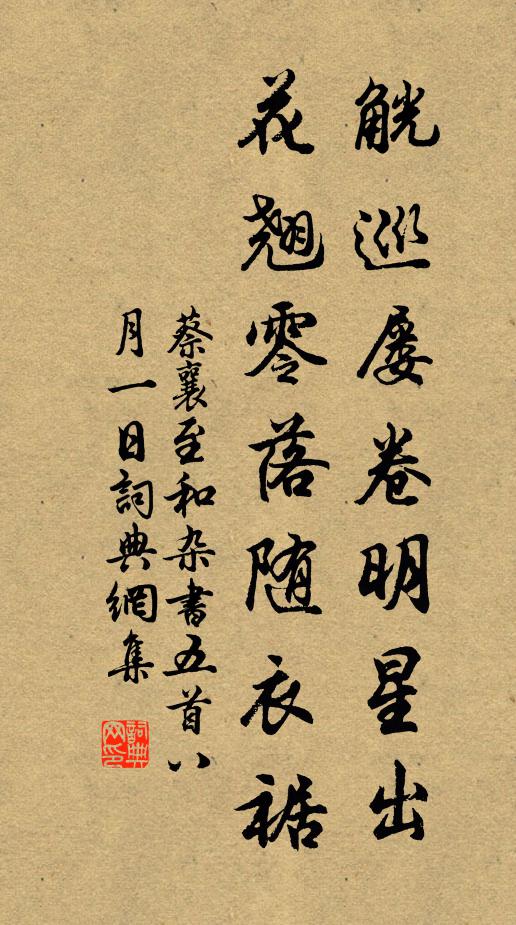 觥巡屡卷明星出
花翘零落随衣裾
蔡襄至和杂書五首八
月一日詞典網集
詞典网印